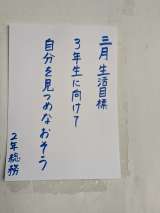 三月 生活目標
3年生に向けて
自分を見つめなおそう
2年総務